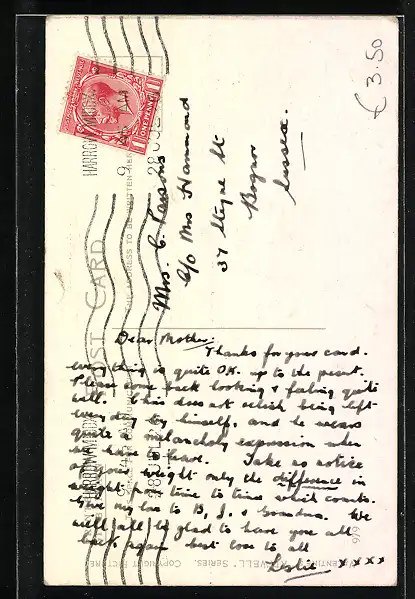 £ 3.50
HARROW
ONE PENNY
POST CARD
Mrs. C. Parsons
C/o Mrs Hammond
37 Steyne St
Bognor
Sussex.
Dear Mother,
Thanks for your card.
everything is quite O.K. up to the present.
Please come back looking & feeling quite
well. Chin does not relish being left
every day by himself, and he wears
quite a melancholy expression when
we have to leave. Take no notice
of your weight only the difference in
weight from time to time which counts.
Give my love to B, J, & Grandma. We
will all be glad to have you all
back again best love to all
Leslie x x x x
SERIES.
COPYRIGHT PICTURE